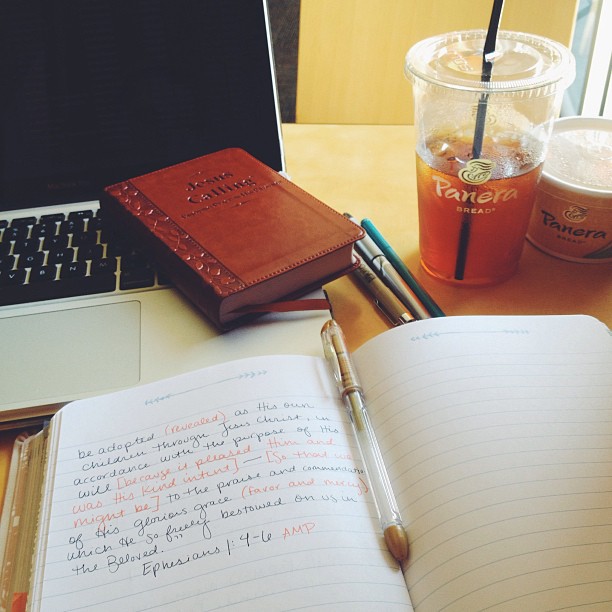 Jesus
Calling
Panera
BREAD
Panera
BREAD
be adopted (revealed) as His own
children through Jesus Christ, in
accordance with the purpose of His
will [because it pleased Him and
was His kind intent] — [So that we
might be] to the praise and commendation
of His glorious grace (favor and mercy)
which He so freely bestowed on us in
the Beloved."
Ephesians 1:4-6 AMP